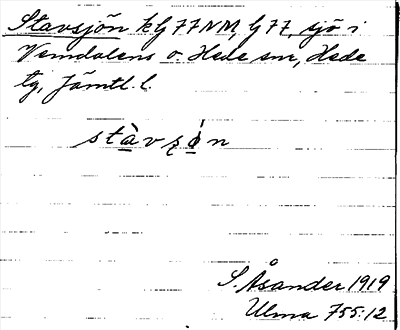 Stavsjön kG77NM, G77, sjö i
Vemdalens o. Hede snr, Hede
tg, Jämtl. l.
stàvʂón
S. Åsander 1919
Ulma 755:12